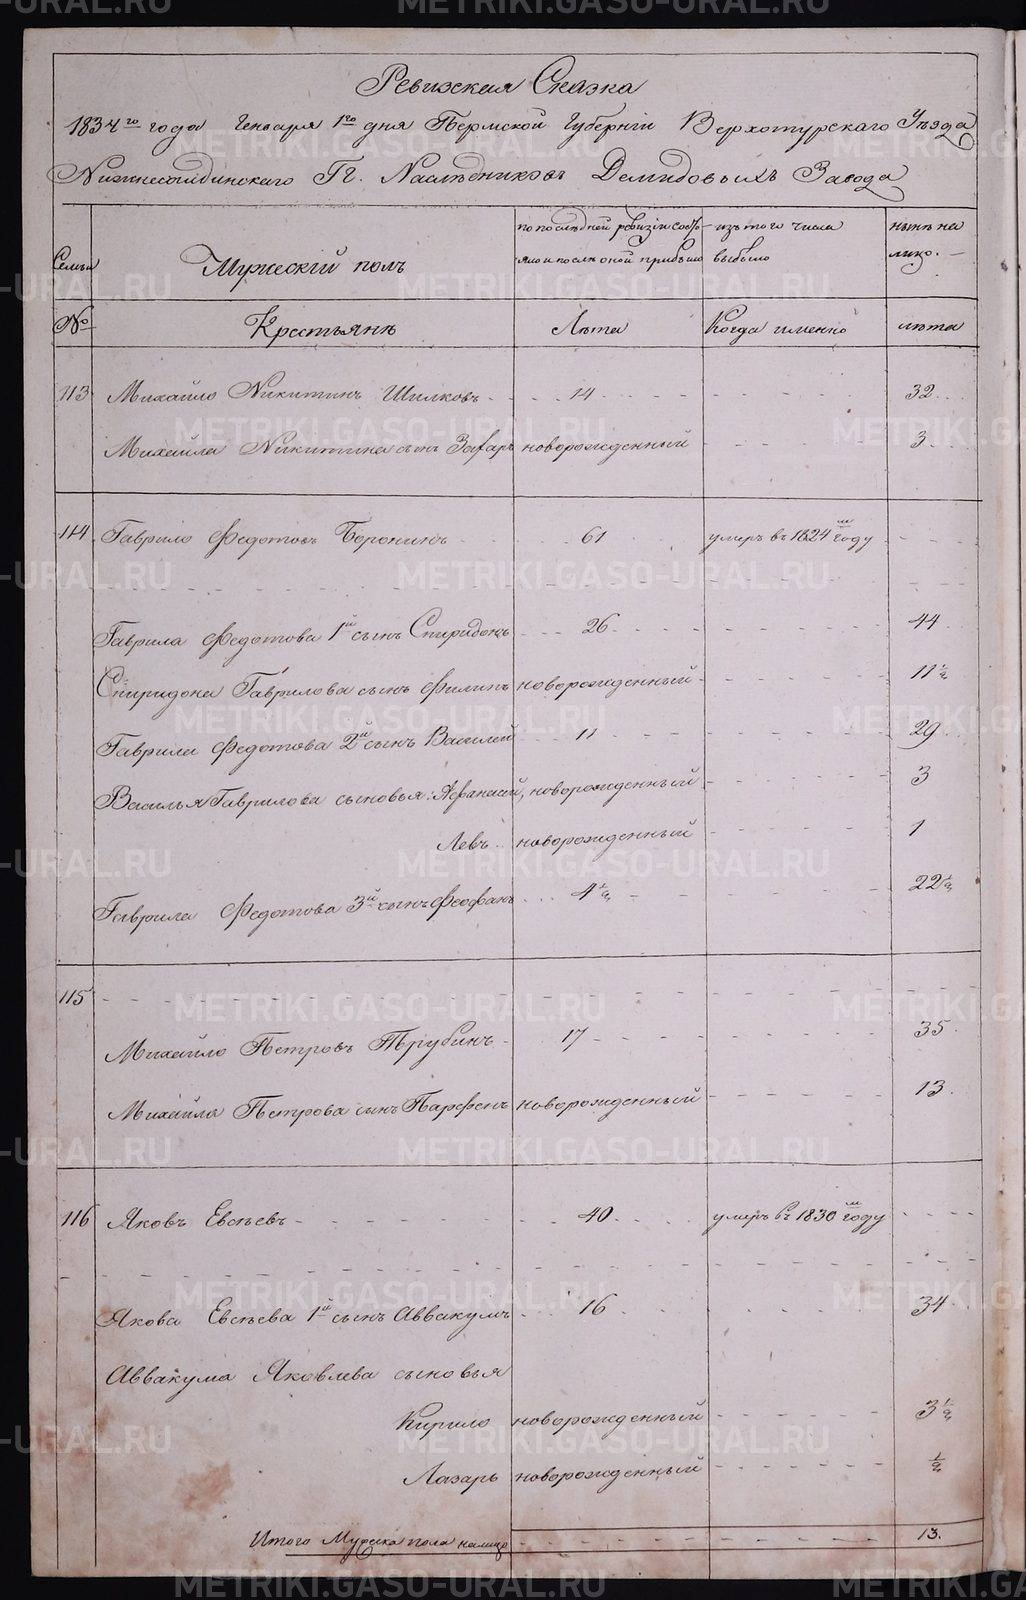 Ревизская Сказка
1834го года Генваря 1го дня Пермской Губернiи Верхотурскаго Уѣзда
Нижнесалдинскаго Гг. Наслѣдниковъ Демидовыхъ Завода
Семьи
Мужескiй полъ
по послѣдней ревизiи состо-
яло и послѣ оной прибыло
изъ того числа
выбыло
нынѣ на
лицо.
№
Крестьянъ
Лѣта
Когда именно
лѣта
113 Михайло Никитинъ Шилковъ 14 32
Михайла Никитина сынъ Захаръ новорожденный 3
114 Гаврило Федотовъ 61 умеръ въ 1824м году
Гаврила Федотова 1й сынъ Спиридонъ 26 44
Спиридона Гаврилова сынъ Филипъ новорожденный 11 ½
Гаврила Федотова 2й сынъ Василей 11 29
Василья Гаврилова сыновья: Афанасий, новорожденный 3
Левъ новорожденный 1
Гаврила Федотова 3й сынъ Феофанъ 4 ½ 22 ½
115
Михайло Петровъ Трубинъ 17 35
Михайла Петрова сынъ Парфенъ новорожденный 13
116 Яковъ Евсѣевъ 40 умеръ въ 1830м году
Якова Евсѣева 1й сынъ Аввакумъ 16 34
Аввакума Яковлева сыновья
Кирило новорожденный 3 ½
Лазарь новорожденный ½
Итого Мужеска пола налицо 13.
METRIKI.GASO-URAL.RU